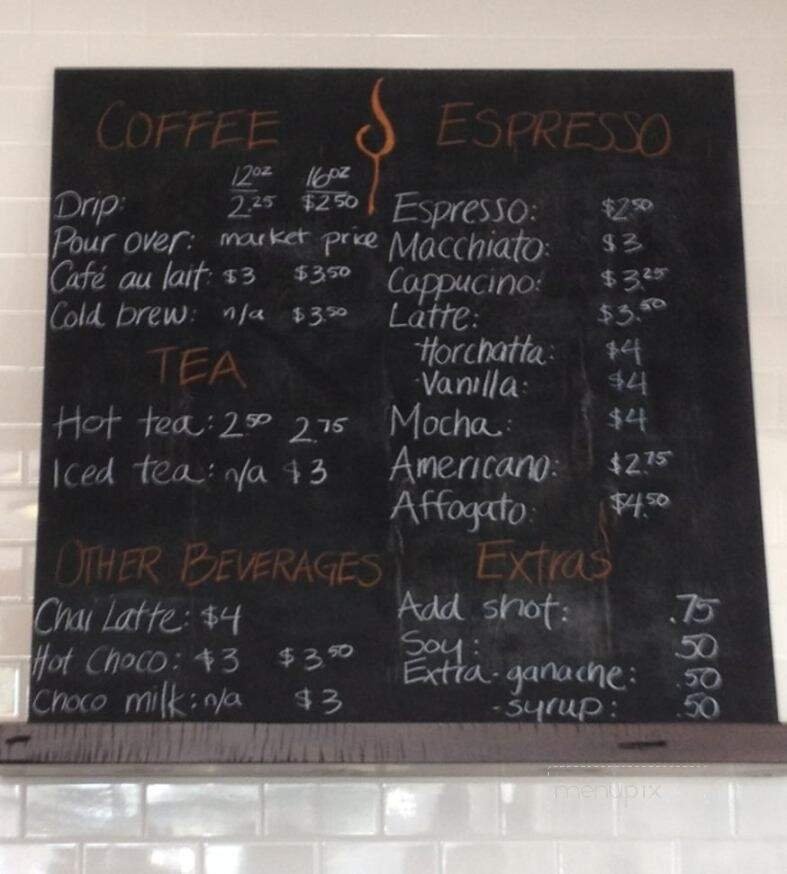 COFFEE
12oz 16oz
Drip: 2.25 $2.50
Pour over: market price
Café au lait: $3 $3.50
Cold brew: n/a $3.50
TEA
Hot tea: 2.50 2.75
Iced tea: n/a $3
OTHER BEVERAGES
Chai Latte: $4
Hot Choco: $3 $3.50
Choco milk: n/a $3
ESPRESSO
Espresso: $2.50
Macchiato: $3
Cappucino: $3.25
Latte: $3.50
Horchatta: $4
Vanilla: $4
Mocha: $4
Americano: $2.75
Affogato: $4.50
Extras
Add shot: .75
Soy: .50
Extra - ganache: .50
- syrup: .50
menupix